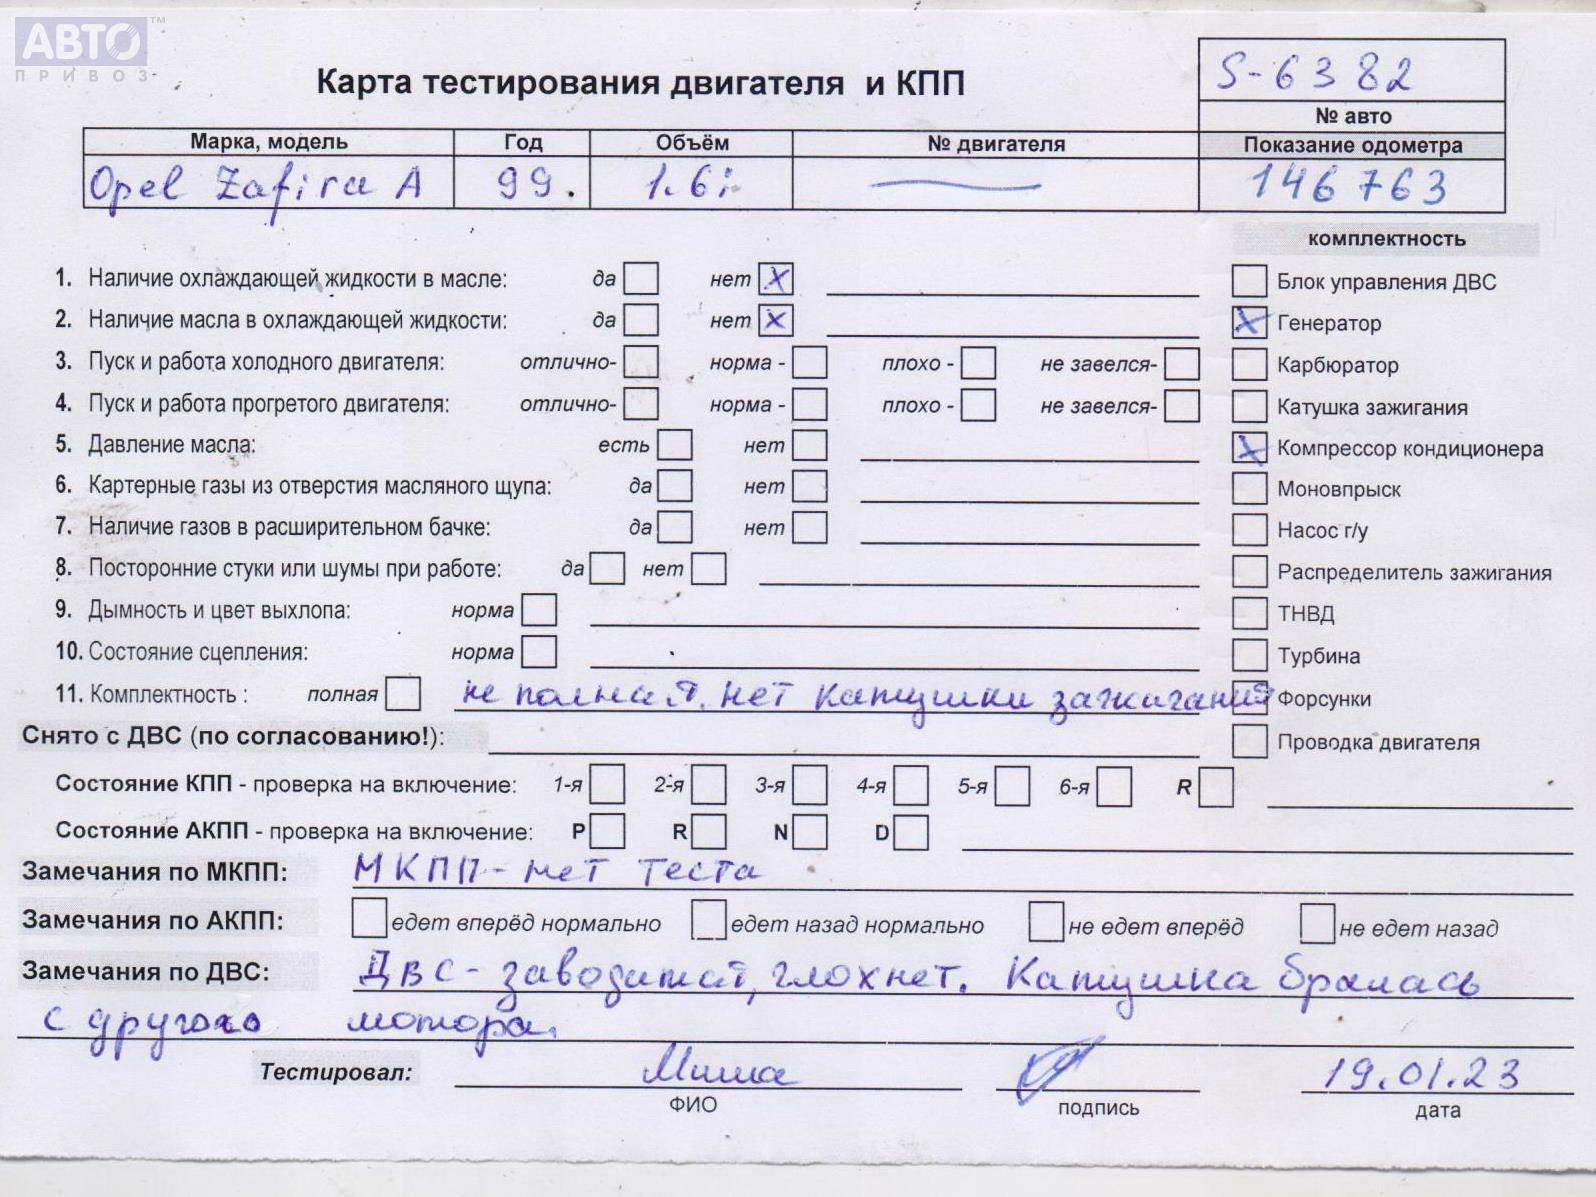 АВТО™
ПРИВОЗ
Карта тестирования двигателя и КПП
S-6382
№ авто
Марка, модель Год Объём № двигателя Показание одометра
Opel Zafira A 99. 1.6i — 146763
комплектность
1. Наличие охлаждающей жидкости в масле: да нет X Блок управления ДВС
2. Наличие масла в охлаждающей жидкости: да нет X X Генератор
3. Пуск и работа холодного двигателя: отлично- норма - плохо - не завелся- Карбюратор
4. Пуск и работа прогретого двигателя: отлично- норма - плохо - не завелся- Катушка зажигания
5. Давление масла: есть нет X Компрессор кондиционера
6. Картерные газы из отверстия масляного щупа: да нет Моновпрыск
7. Наличие газов в расширительном бачке: да нет Насос г/у
8. Посторонние стуки или шумы при работе: да нет Распределитель зажигания
9. Дымность и цвет выхлопа: норма ТНВД
10. Состояние сцепления: норма Турбина
11. Комплектность : полная не полная. нет катушки зажигания Форсунки
Снято с ДВС (по согласованию!): Проводка двигателя
Состояние КПП - проверка на включение: 1-я 2-я 3-я 4-я 5-я 6-я R
Состояние АКПП - проверка на включение: P R N D
Замечания по МКПП: МКПП - нет теста
Замечания по АКПП: едет вперёд нормально едет назад нормально не едет вперёд не едет назад
Замечания по ДВС: ДВС - заводится, глохнет. Катушка бралась
с другого мотора.
Тестировал: Миша 19.01.23
ФИО подпись дата